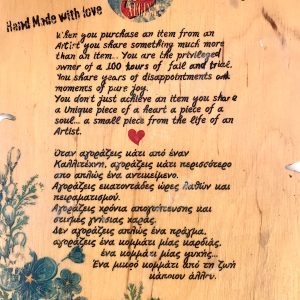 Hand Made with love
When you purchase an item from an
Artist you share something much more
than an item... You are the privileged
owner of a 100 tours of fail and trial.
You share years of disappointments and
moments of pure joy.
You don't just achieve an item you share
a unique piece of a heart a piece of a
soul... a small piece from the life of an
Artist.
Όταν αγοράζεις κάτι από έναν
Καλλιτέχνη, αγοράζεις κάτι περισσότερο
από απλώς ένα αντικείμενο.
Αγοράζεις εκατοντάδες ώρες λαθών και
πειραματισμού.
Αγοράζεις χρόνια απογοήτευσης και
στιγμές γνήσιας χαράς.
Δεν αγοράζεις απλώς ένα πράγμα,
αγοράζεις ένα κομμάτι μιας καρδιάς,
ένα κομμάτι μιας ψυχής...
Ένα μικρό κομμάτι από τη ζωή
κάποιου άλλου.